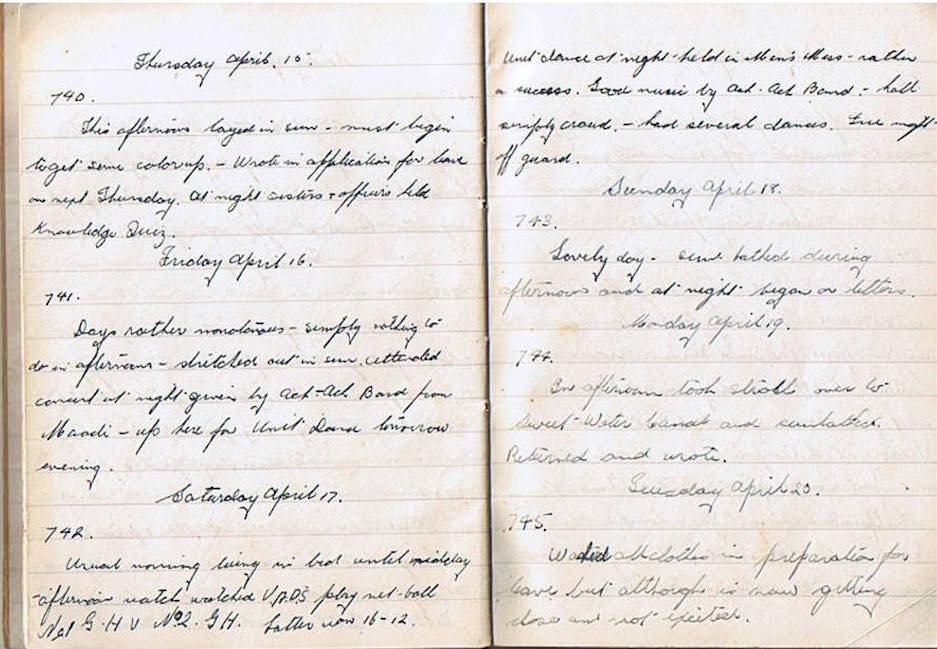 Thursday April. 15.
740.
This afternoon layed in sun - must begin
to get some color up. - Wrote in application for leave
on next Thursday. At night sisters + officers held
Knowledge Quiz.
Friday April 16.
741.
Days rather monotonous - simply nothing to
do in afternoons - stretched out in sun. Attended
concert at night given by Ack-Ack Band from
Maadi - up here for Unit Dance tomorrow
evening.
Saturday April 17.
742.
Usual morning being in bed until midday
- afternoon watch watched V.A.D.S play net-ball
No1 G.H V No2. G.H. Latter won 16-12.
Unit dance at night held in Men's Mess - rather
a success. Good music by Ack-Ack Band - hall
simply crowd. - had several dances. Free night
off guard.
Sunday April 18.
743.
Lovely day. sun bathed during
afternoon and at night began on letters.
Monday April 19.
744.
In afternoon took stroll over to
Sweet-Water Canal and sunbathed.
Returned and wrote.
Tuesday April 20.
745.
Washed all clothes in preparation for
leave but although is now getting
close am not excited.